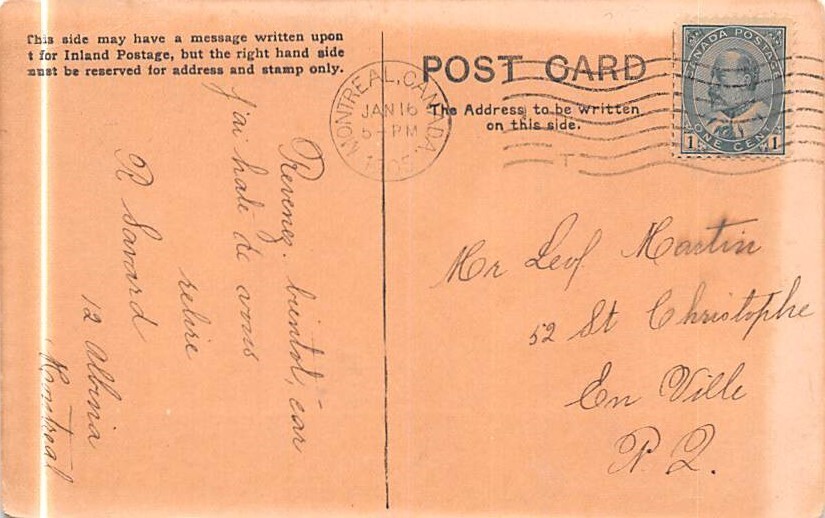 This side may have a message written upon
t for Inland Postage, but the right hand side
must be reserved for address and stamp only.
POST CARD
The Address to be written
on this side.
MONTREAL, CANADA.
JAN 16
5 - PM
CANADA POSTAGE
ONE CENT
1 1
Revenez. bientot, car
j'ai hate de vous
relire
R Savard
12 Albina
Montreal
Mr Leof Martin
52 St Christophe
En Ville
P. Q.